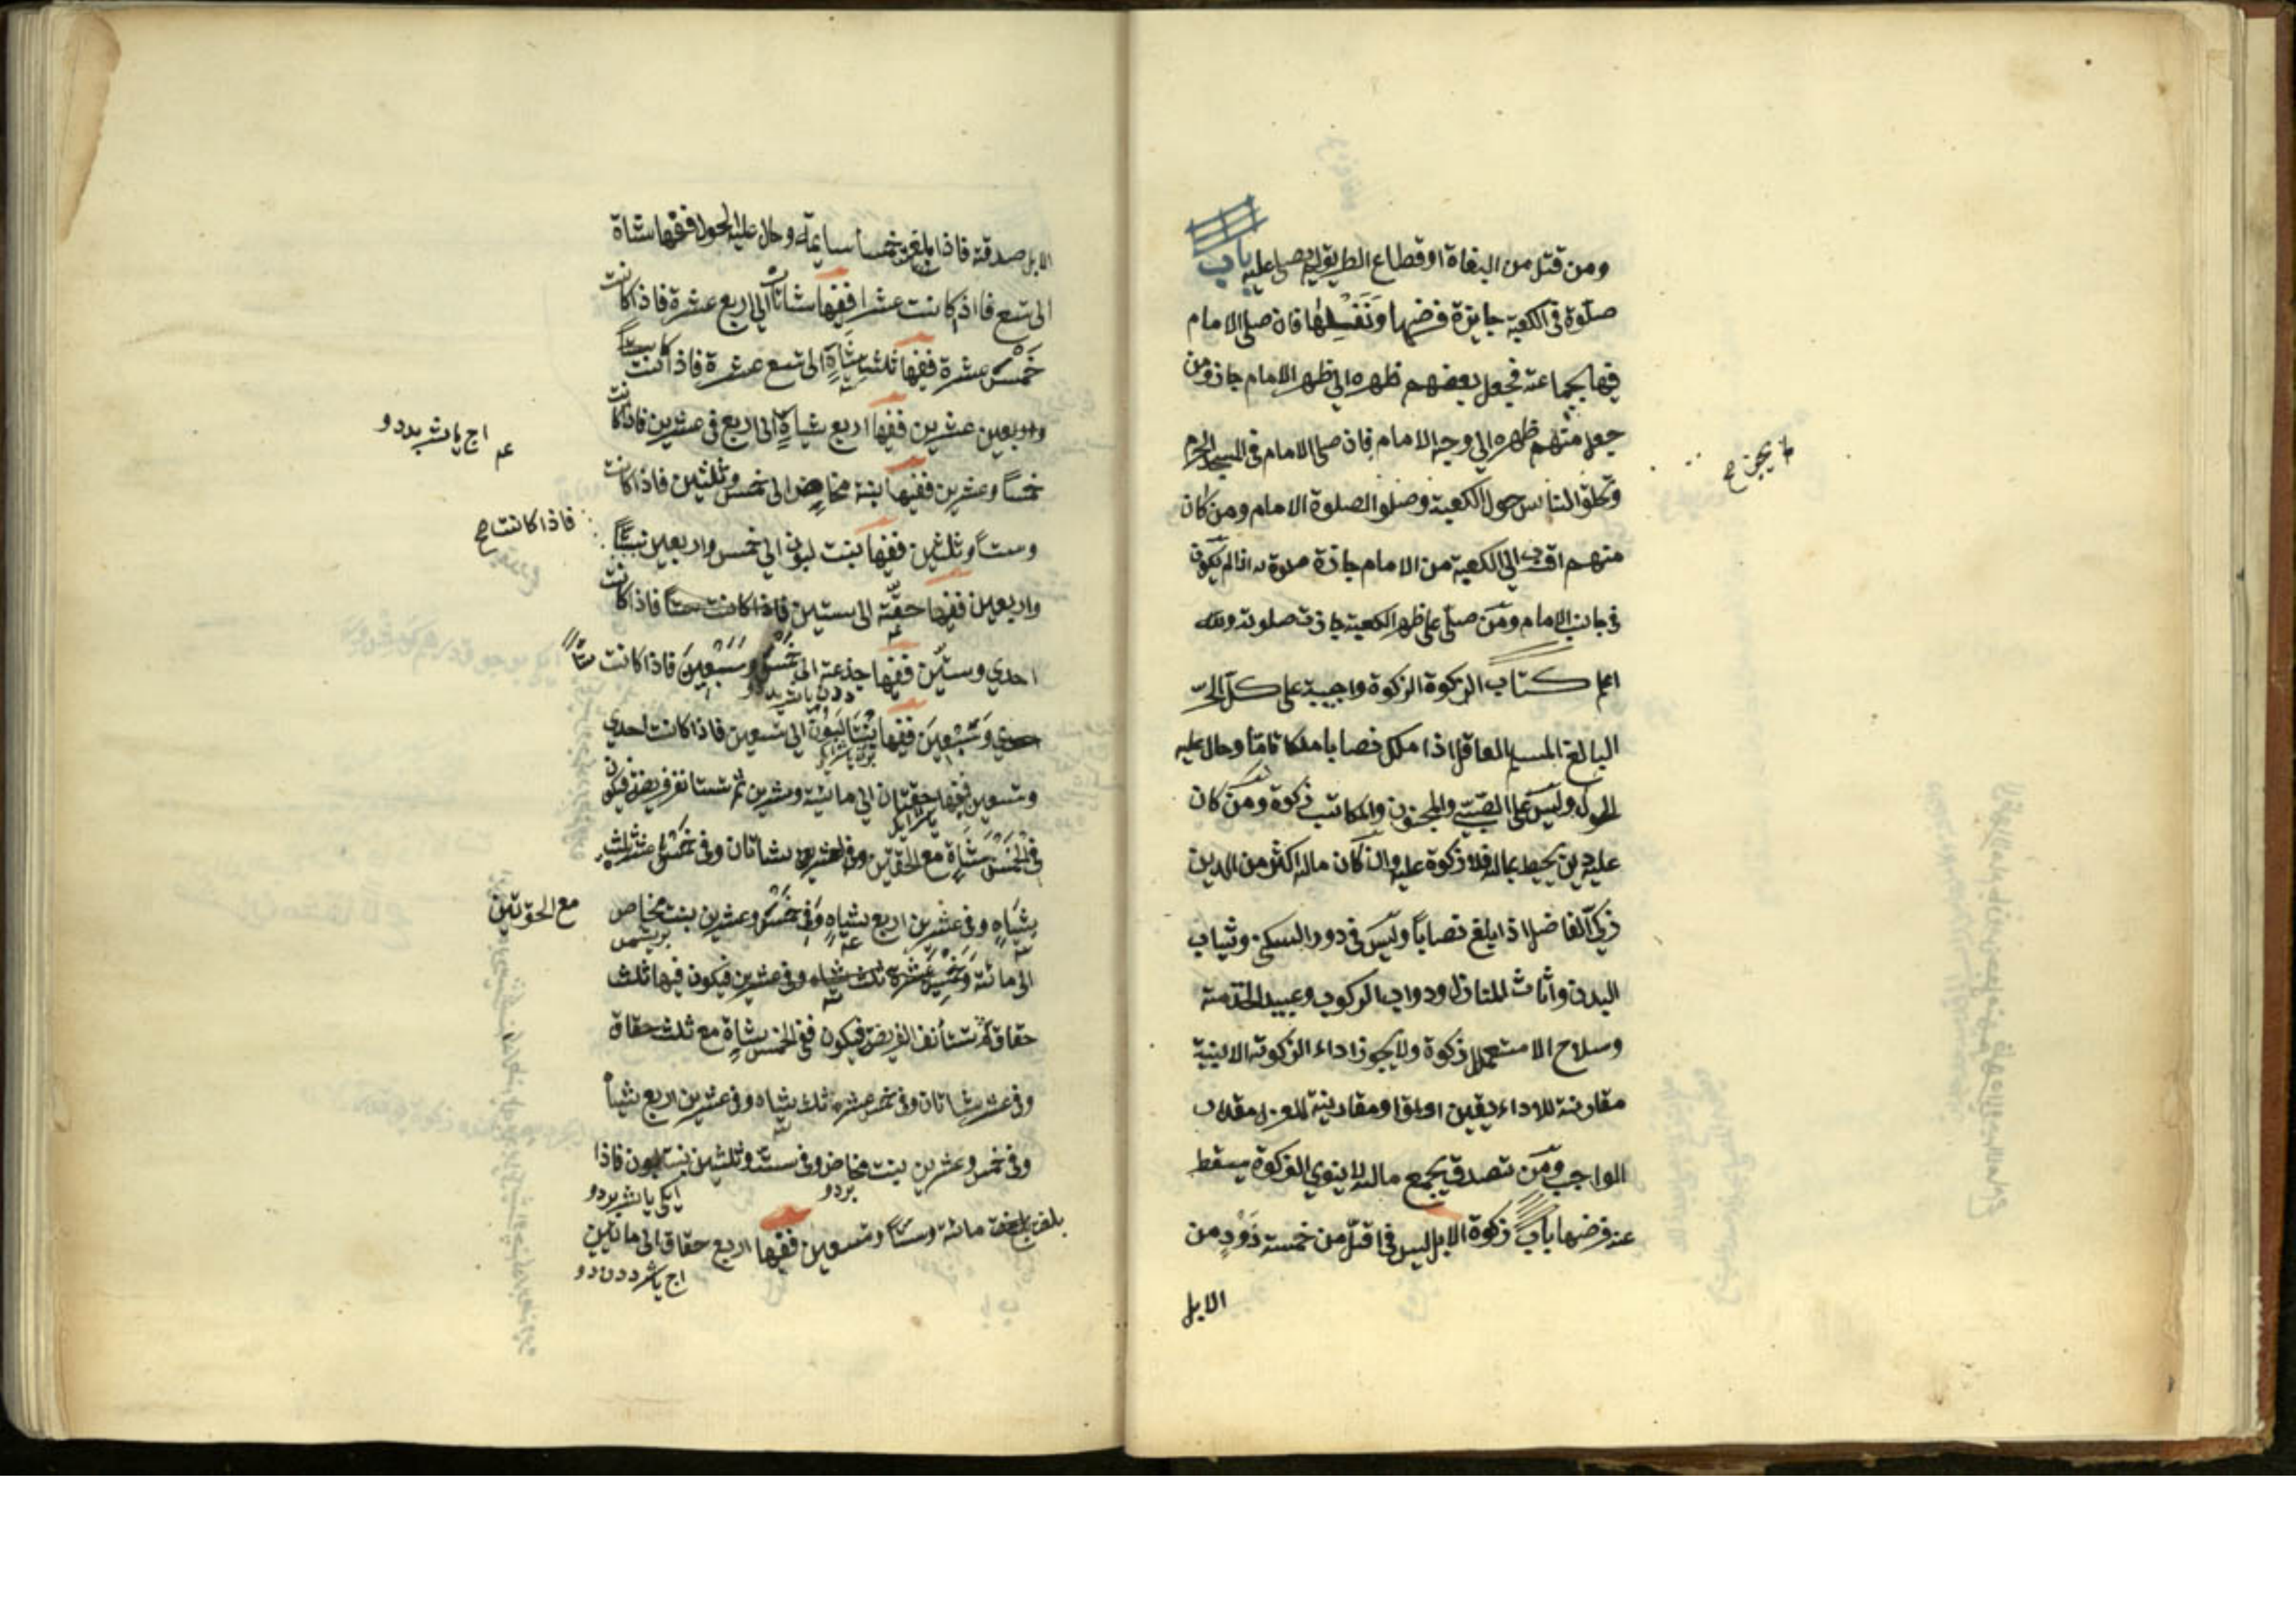 ومن قتل من البغاة او قطاع الطريق لم يصلى عليه باب
صلوة فى الكعبة جايزة فرضها ونفلها فان صلى الامام
فيها بجماعة فجعل بعضهم ظهره الى ظهر الامام جاز ومن
جعل منهم ظهره الى وجه الامام فان صلى الامام فى المسجد الحرم
لا يجز صح
وتحلق الناس حول الكعبة وصلوا الصلوة الامام ومن كان
منهم اقرب الى الكعبة من الامام جازة صلوة اذا لم يكون
فى جانب الامام ومن صلى على ظهر الكعبة جازت صلوته
اعلم كتاب الزكوة الزكوة واجبة على كل الحر
البالغ المسلم العاقل اذا ملك نصابا ملكا تاما وحال عليه
الحول وليس على الصبى والمجنون والمكاتب زكوة ومن كان
عليه دين يحيط بماله فلا زكوة عليه وان كان ماله اكثر من الدين
زكى الفاضل اذا بلغ نصابا وليس فى دور السكنى وثياب
البدن واثاث المنازل ودواب الركوب وعبيد الخدمة
وسلاح الاستعمال زكوة ولا يجوز اداء الزكوة الا بنية
مقارنة للاداء او مقارنة لعزل مقدار
الواجب ومن تصدق بجمع ماله لا ينوى الزكوة يسقط
عنه فرضها باب زكوة الابل ليس فى اقل من خمسة ذود من
الابل
الابل صدقة فاذا بلغت خمسا سايمة وحال عليه الحول ففيها شاة
الى تسع فااذا كانت عشرا ففيها شاتان الى اربع عشرة فاذا كانت
خمس عشرة ففيها ثلث شياة الى تسع عشرة فاذا كانت
عشرين ففيها اربع شياة الى اربع فى عشرين فاذا كانت
خمسا وعشرين ففيها بنة مخاض الى خمس وثلثين فاذا كانت
فاذا كانت صح
وستا وثلثين ففيها بنت لبون الى خمس واربعين
واربعين ففيها حقة الى ستين فاذا كانت ستا فاذا كانت
احدي وستين ففيها جذعة الى خمس وسبعين فاذا كانت ستا
وسبعين ففيها بنتا لبون الى تسعين فاذا كانت احدي
وتسعين ففيها حقتان الى مائة وعشرين ثم تستانف فريضة فيكون
فى الخمس شاة مع الحقتين وفى العشر شاتان وفى خمس عشر ثلث
شياه وفى عشرين اربع شياه وفى خمس وعشرين بنت مخاض
مع الحقتين
الى مائة وخمس عشرة ثلث شياه وفى عشرين فيكون فيها ثلث
حقاق ثم تستأنف الفريضة فيكون ففى الخمس شاة مع ثلث حقاق
وفى عشر شاتان وفى خمس عشرة ثلث شياه وفى عشرين اربع شياه
وفى خمس وعشرين بنت مخاض وفى ستة وثلثين بنت لبون فاذا
بلغت مائة وستا وتسعين ففيها اربع حقاق الى ماتين